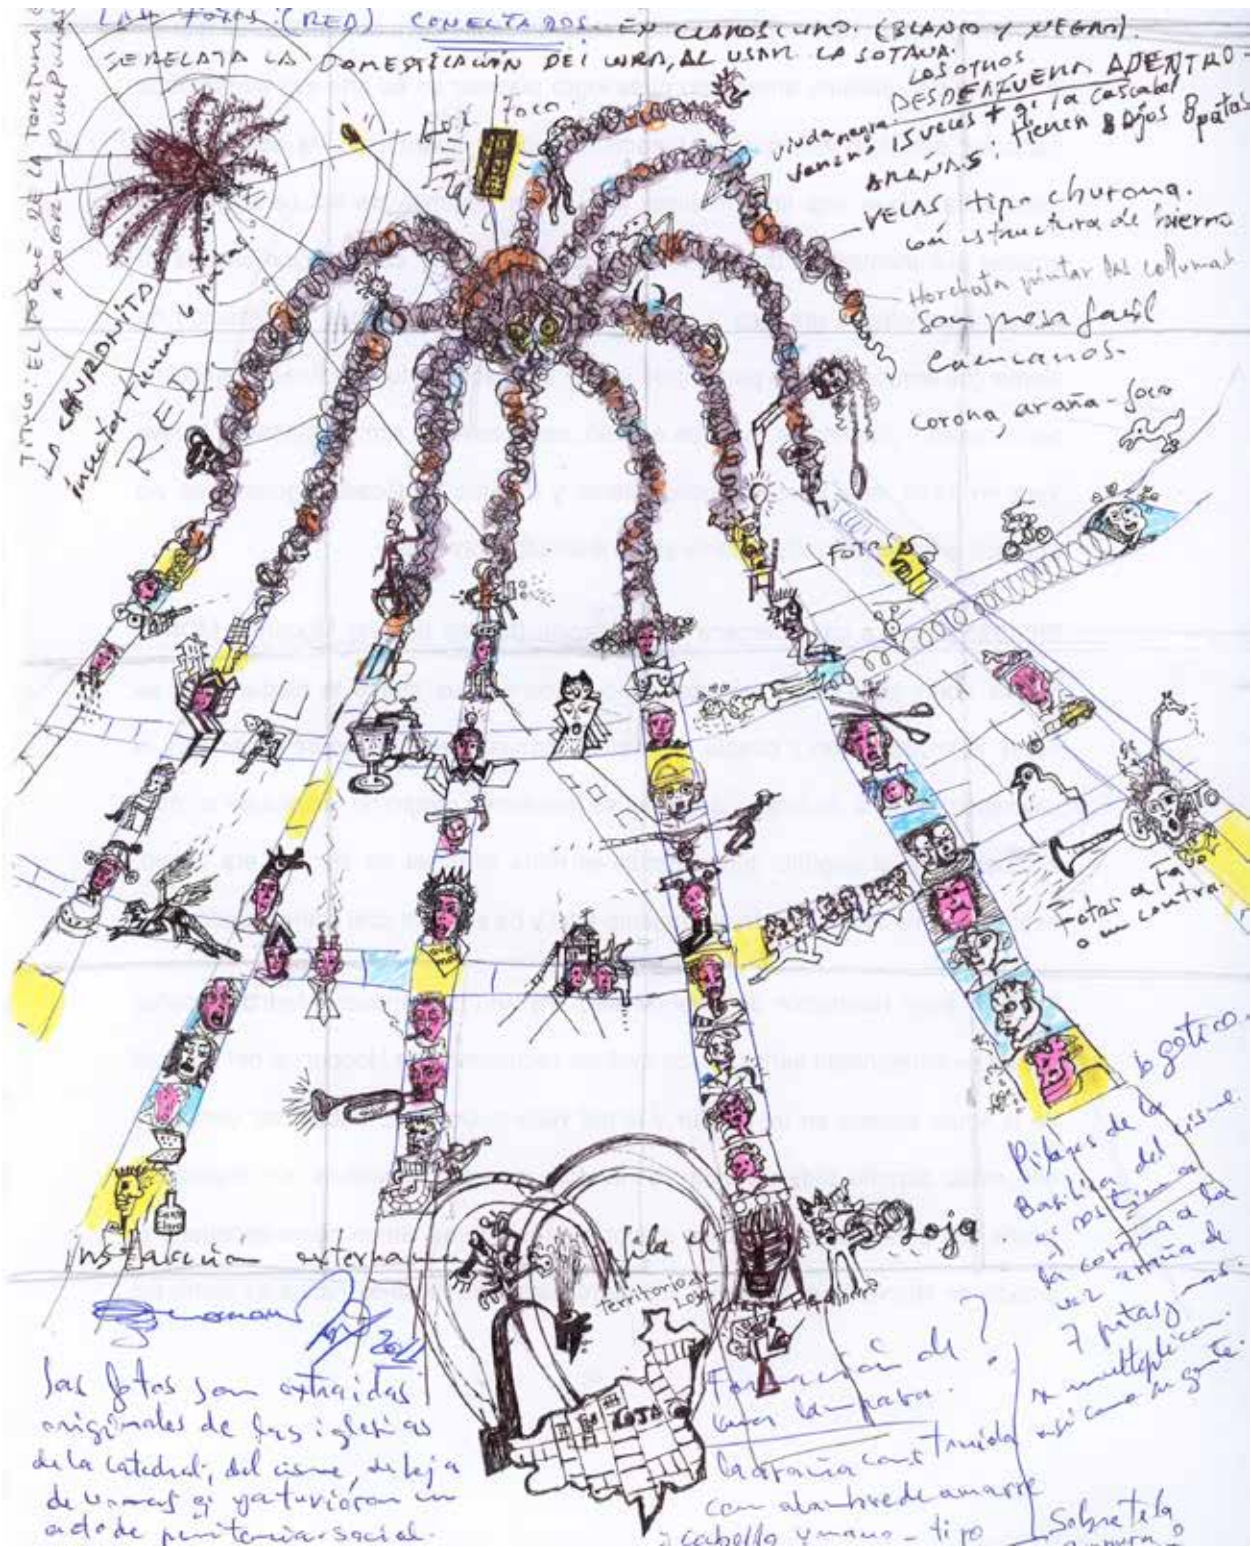 LAS FOTOS: (RED) CONECTADOS. EN CLAROSCURO. (BLANCO Y NEGRO).
SE RELATA LA DOMESTICACIÓN DEL CURA, AL USAR LA SOTANA.
LOS OTROS
DESDE AFUERA ADENTRO-
viuda negra.
veneno 15 veces + q. la cascabel
ARAÑAS: tienen 8 ojos 8 patas
VELAS tipo churona.
con estructura de hierro
Horchata
Son presa facil
Cuencanos.
corona, araña-foco
foco
EL TOQUE DE LA TORTURA
LA CHURONITA
insectos tienen 6 patas.
RED
FOTAS
Fotos a favor
o en contra.
gotico.
Pilares de la
Basilica del cisne.
q. sostiene
la corona a la
vez araña de
7 patas y mas.
se multiplican.
así como su gente.
externa
Loja
Territorio de
LOJA
LOJA
2011
Las fotos son extraidas
originales de las iglesias
de la catedral, del cisne, de loja
q. ya tuvieron un
acto de penitencia social.
Formación de
una lampara.
?
La araña construida
con alambre de amarre
y cabello umano - tipo
Sobre tela